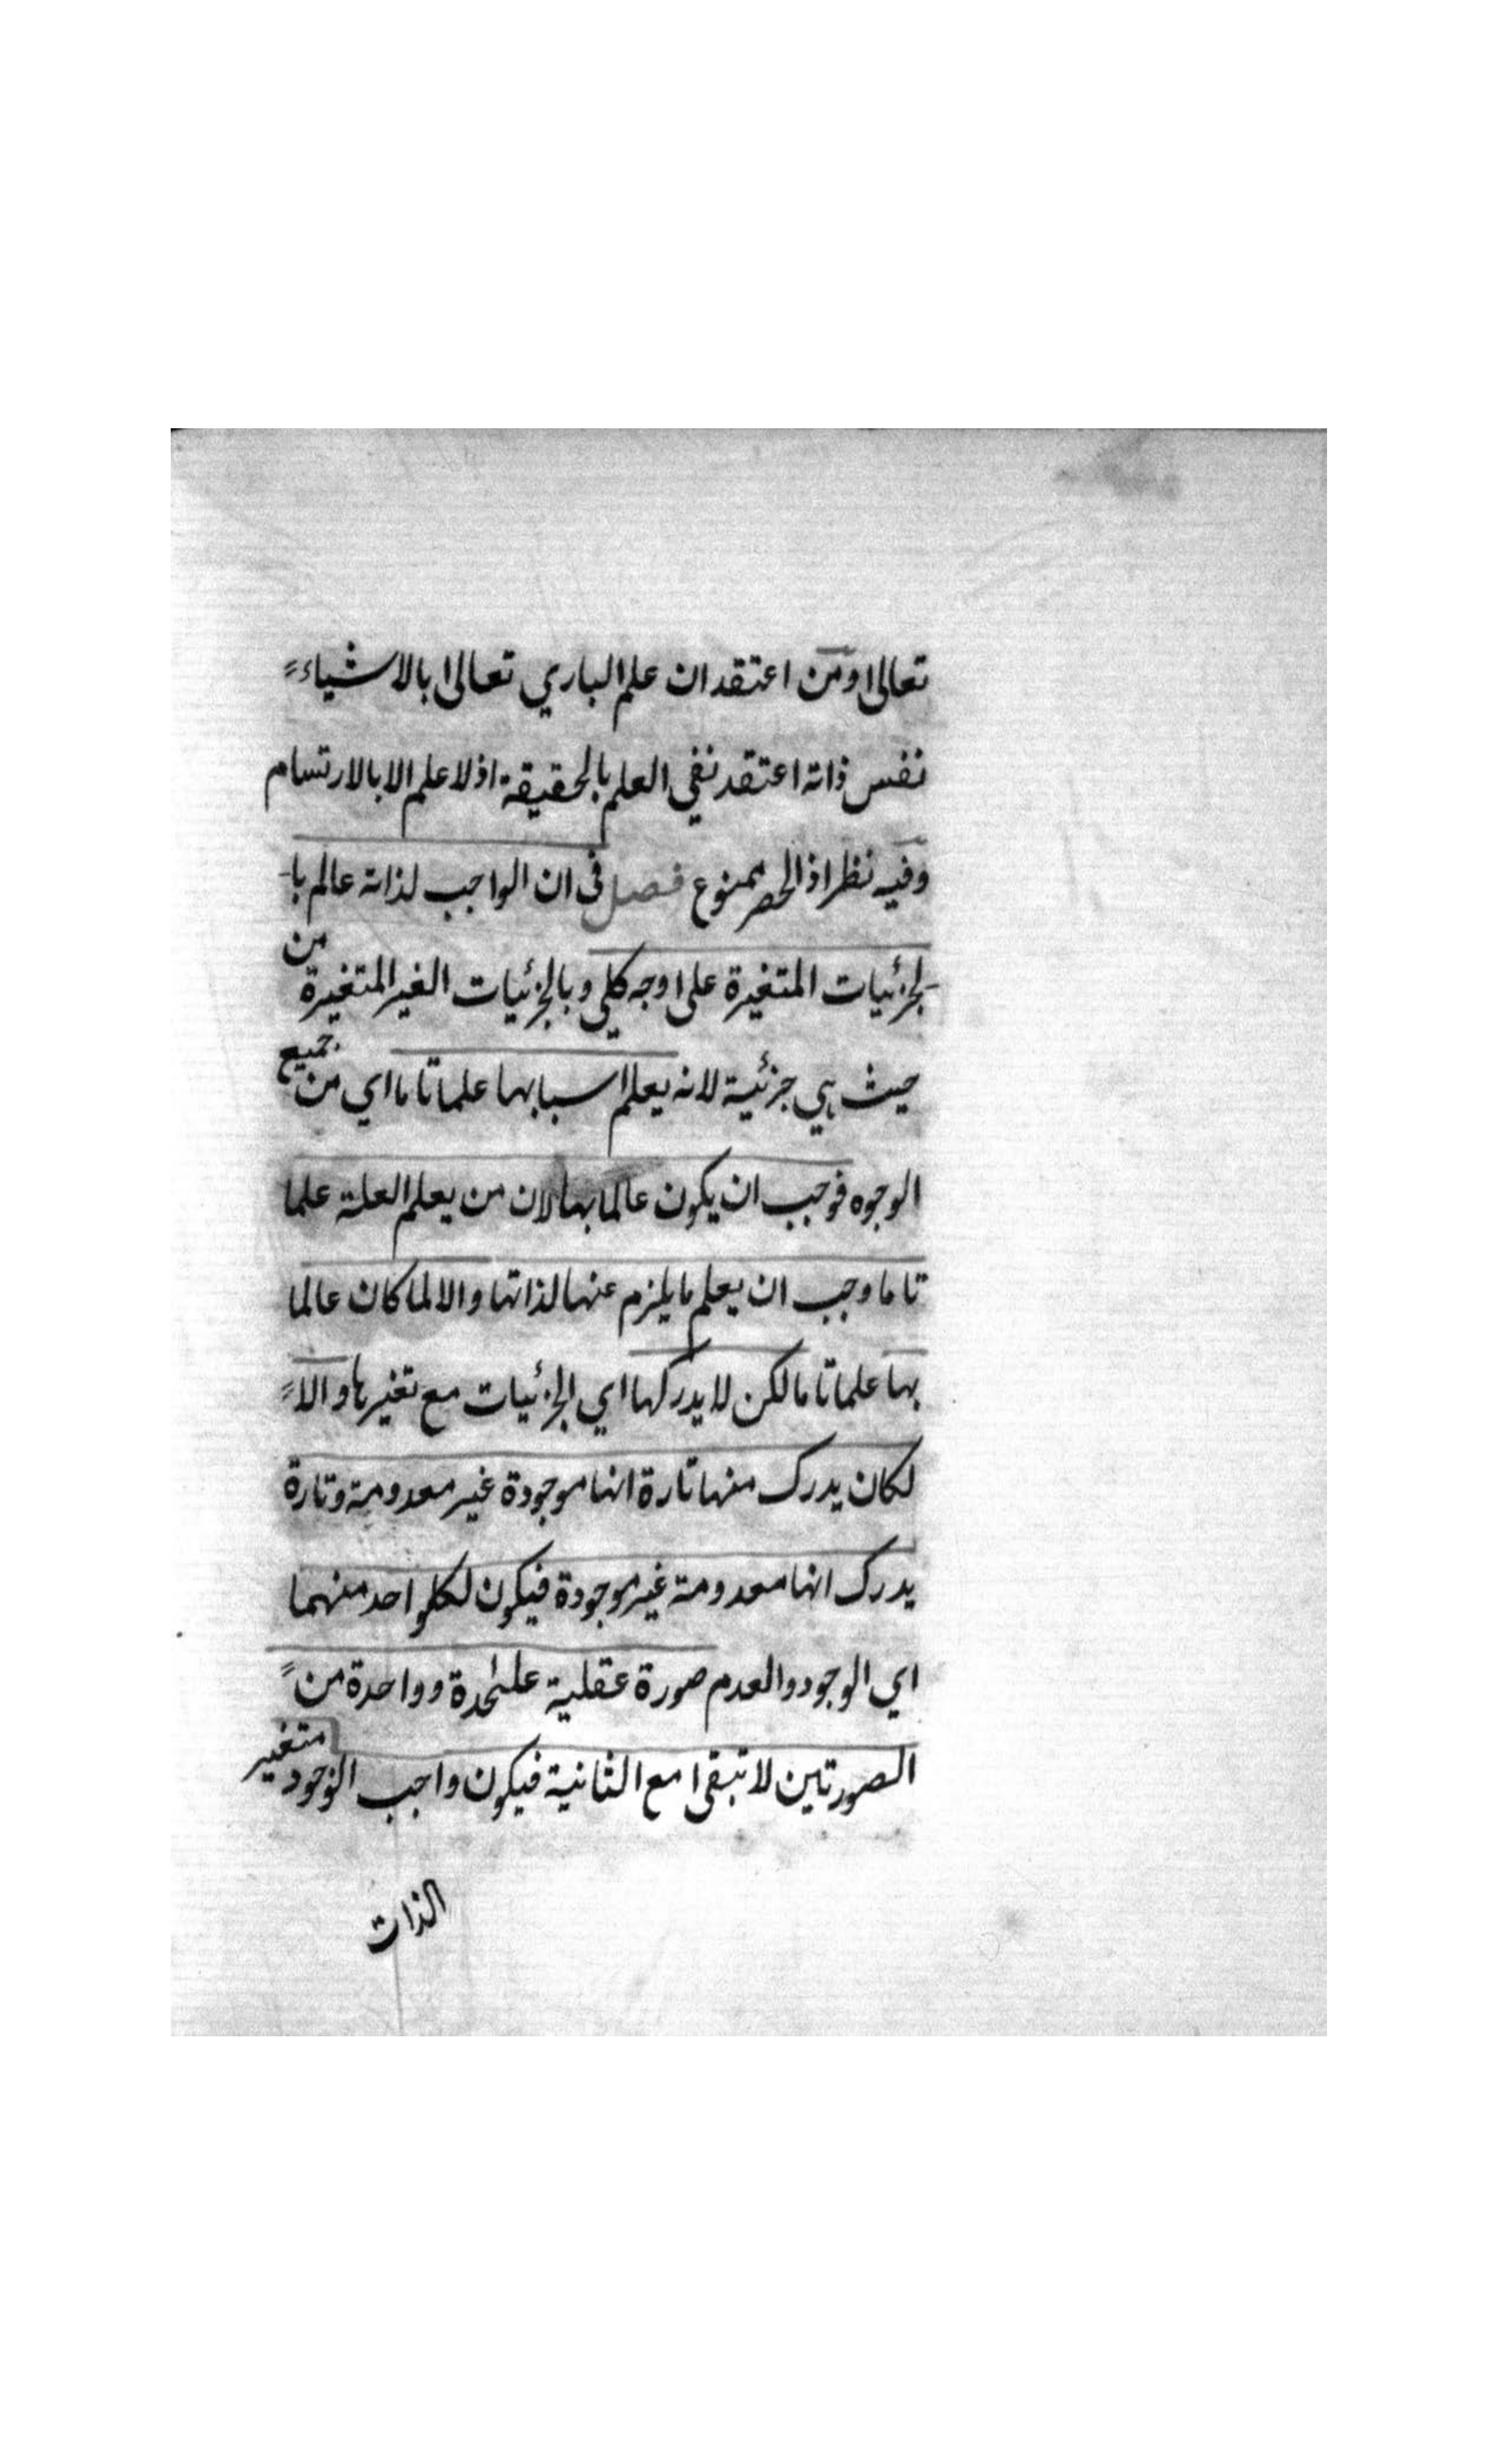 تعالى ومن اعتقد ان علم الباري تعالى بالاشياء
نفس ذاته اعتقد نفي العلم بالحقيقة اذ لا علم الا بالارتسام
وفيه نظر اذ الحصر ممنوع فصل في ان الواجب لذاته عالم با
لجزئيات المتغيرة على وجه كلي وبالجزئيات الغير المتغيرة من
حيث هي جزئية لانه يعلم اسبابها علما تاما اي من جميع
الوجوه فوجب ان يكون عالما بها لان من يعلم العلة علما
تاما وجب ان يعلم ما يلزم عنها لذاتها والا لما كان عالما
بها علما تاما لكن لا يدركها اي الجزئيات مع تغيرها والا
لكان يدرك منها تارة انها موجودة غير معدومة وتارة
يدرك انها معدومة غير موجودة فيكون لكل واحد منهما
اي الوجود والعدم صورة عقلية على حدة وواحدة من
الصورتين لا تبقى مع الثانية فيكون واجب الوجود متغير
الذات